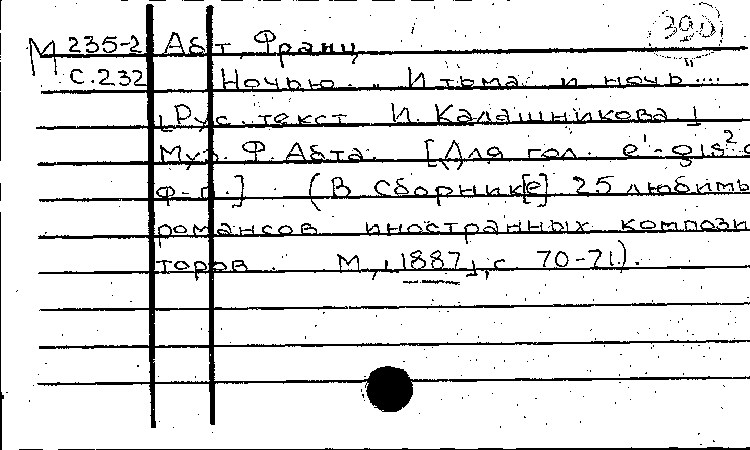 390
М 235-2 Абт, Франц
с.232 Ночью. „И тьма и ночь"....
[Рус. текст И. Калашникова]
Муз. Ф. Абта. [Для гол. e¹-gis² с
ф-п.] (В сборник[е] 25 любимь
романсов иностранных компози
торов. М., [1887], с 70-71).